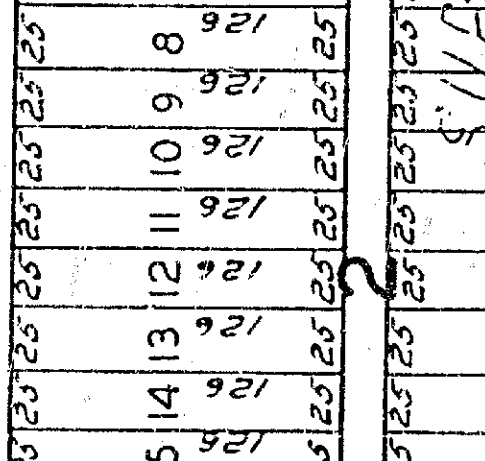 25 8 126 25 25
25 9 126 25 25
25 10 126 25 25
25 11 126 25 25
25 12 126 25 2 25
25 13 126 25 25
25 14 126 25 25
5 5 5